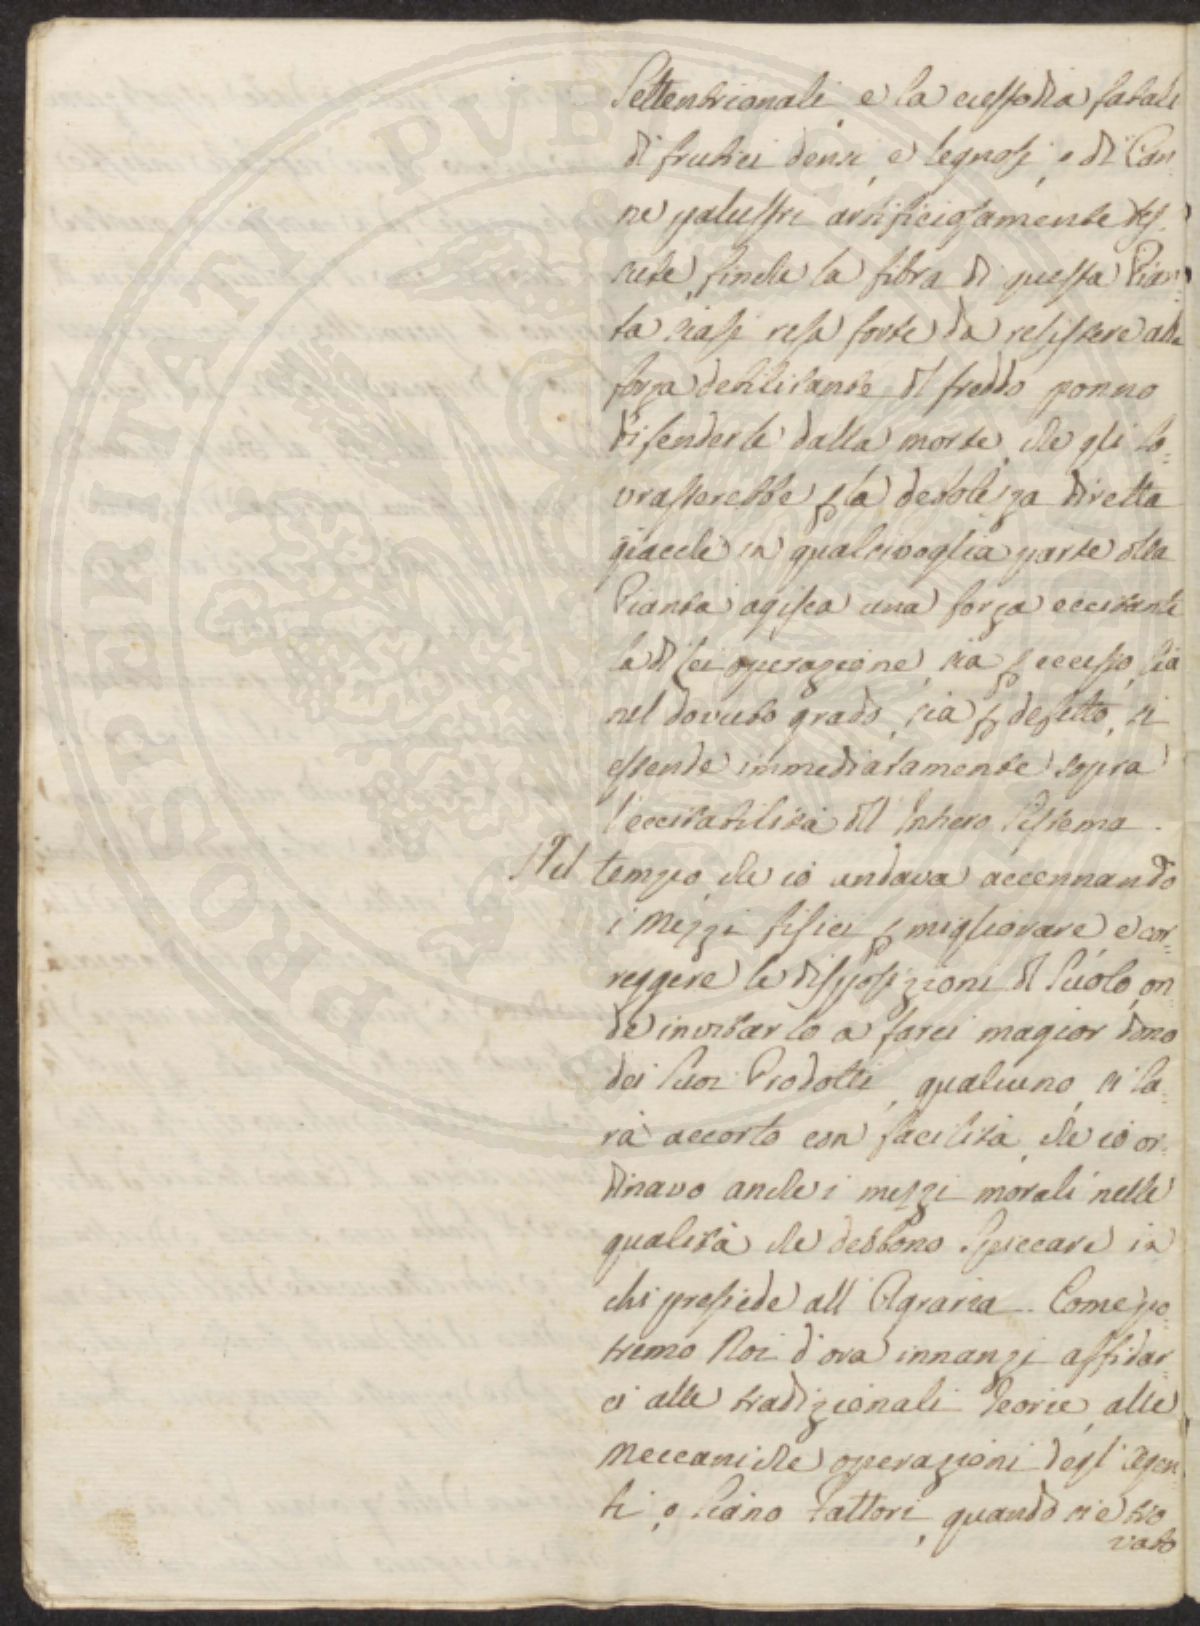 Settentrionali, e la custodia fatale
di frutici densi, e legnosi, e di Can
ne palustri artificiosamente tes-
sute, finche la fibra di questa Pian
ta siasi resa forte da resistere alla
forza debilitante del freddo ponno
difenderle dalla morte, che gli so-
vrasterebbe p la debolezza diretta
giacche in qualsivoglia parte della
Pianta agisca una forza eccitante
la di lei operazione, sia p eccesso, sia
nel dovuto grado, sia p difetto, si
estende immediatamente sopra
l'eccitabilità dell' Intero Sistema.
Nel tempo che io andava accennando
i Mezzi fisici p migliorare e cor-
reggere le disposizioni del Suolo, on
de invitarlo a farci magior dono
dei Suoi Prodotti, qualcuno si sa-
rà accorto con facilità, che io or-
dinavo anche i mezzi morali nelle
qualità che debbono Spiccare in
chi presiede all' Agraria. Come po-
tremo Noi d'ora innanzi affidar-
ci alle tradizionali Teorie, alle
Meccaniche operazioni degl' Agen
ti, o siano Fattori, quando si è tro
vato
PROSPERITATI PVBLICAE